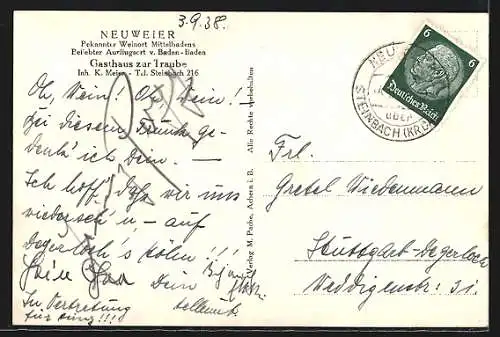 3.9.38.
NEUWEIER
Bekannter Weinort Mittelbadens
Beliebter Ausflugsort v. Baden-Baden
Gasthaus zur Traube
Inh. K. Meier - Tel. Steinbach 216
Oh, Wein! Oh, Wein!
Bei diesem Trunk ge-
denk' ich Dein. —
Ich hoff' daß wir uns
wiederseh'n — auf
Degerloch's Höh'n!!!
Dein
In Vertretung
für
Alle Rechte vorbehalten
Verlag M. Pache, Achern i. B.
6 6
Deutsches Reich
ÜBER
STEINBACH (KR
Frl.
Gretel Wiedenmann
Stuttgart-Degerloch
Weddigenstr. 31.